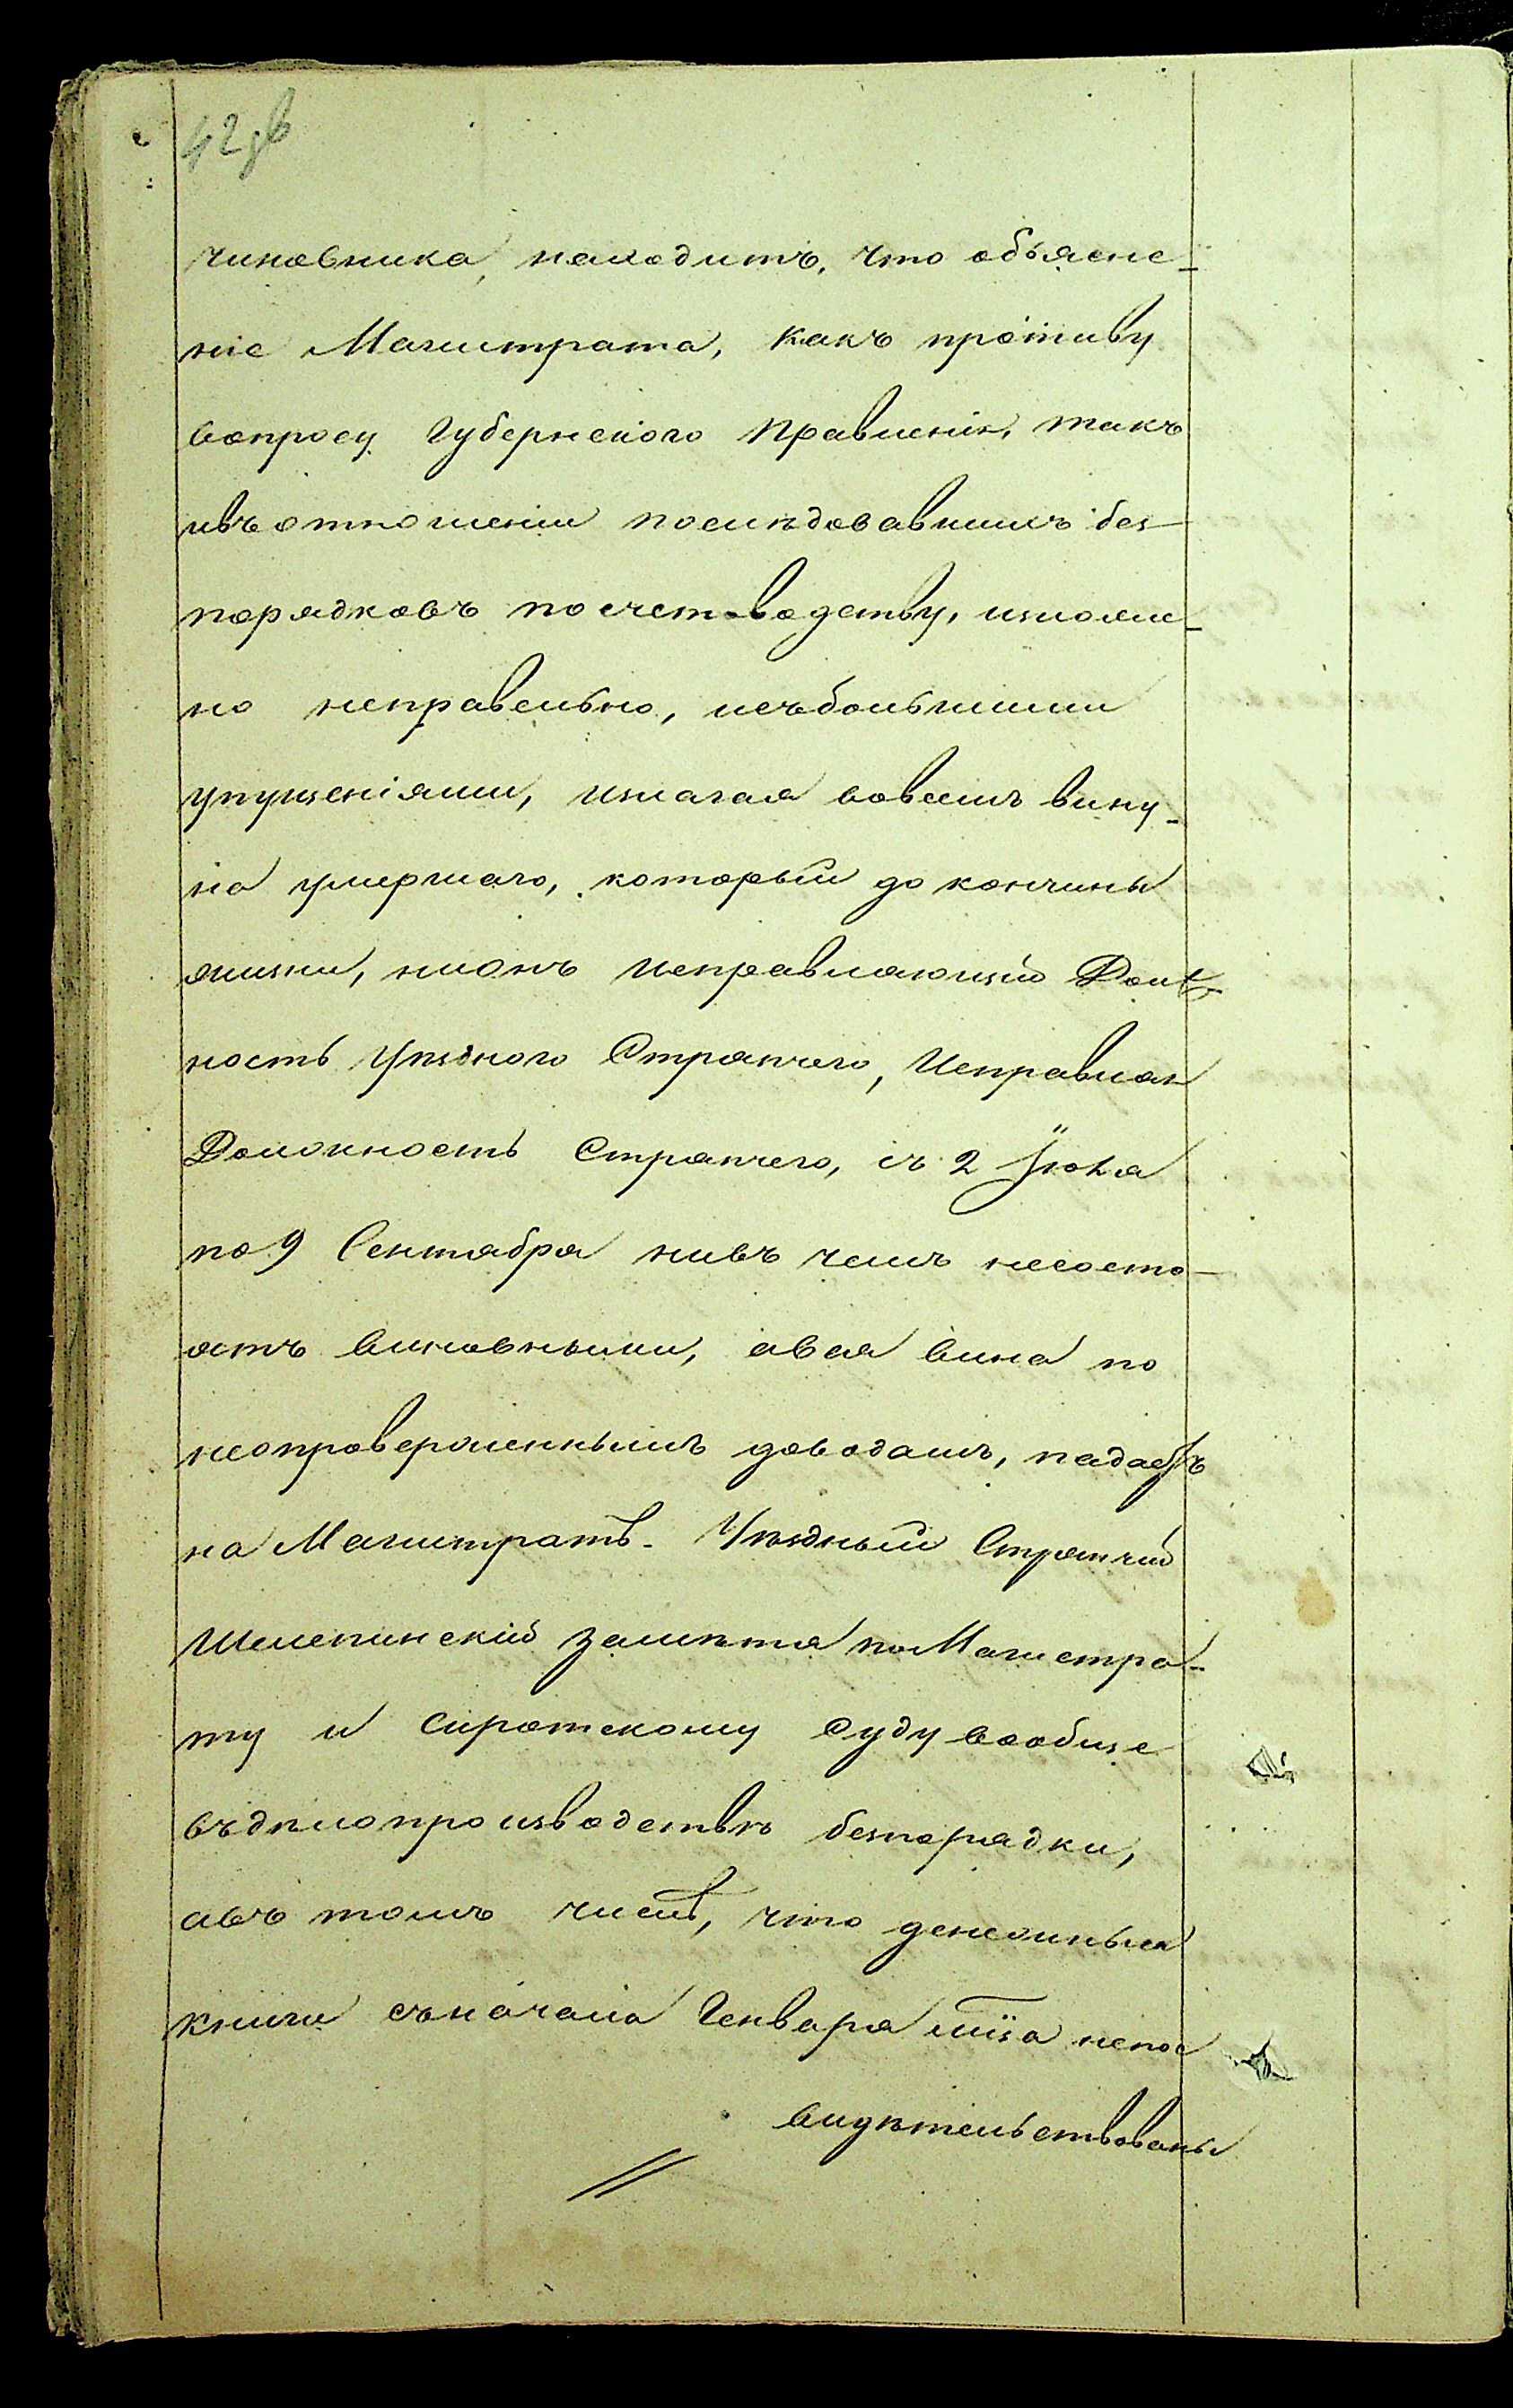 42 об
чиновника, находитъ, что объясне-
ніе Магистрата, какъ противу
вопросу Губернскаго Правленія, такъ
ивъ отношеніи послѣдовавшихъ без-
порядковъ по счетоводству, изложе-
но неправельно, исъбольшими
упущеніями, излагая вовсемъ вину
на умершаго, который до кончины
жизни, ниже исправляющій Долж-
ность Уѣзднаго Стряпчего, Исправляя
Должность Стряпчего, съ 2 Іюля
по 9 Сентября нивъ чемъ несосто-
ятъ виновными, ався вина по
неопроверженнымъ доводамъ, падаетъ
на Магистратъ. Уѣздный Стряпчій
Шелепинскій замѣтя по Магистра-
ту и Сиротскому Суду вообще
въдѣлопроизводствѣ безпорядки,
авъ томъ числѣ, что денежныя
книги съначала Генваря мца непос
видѣтельствованы